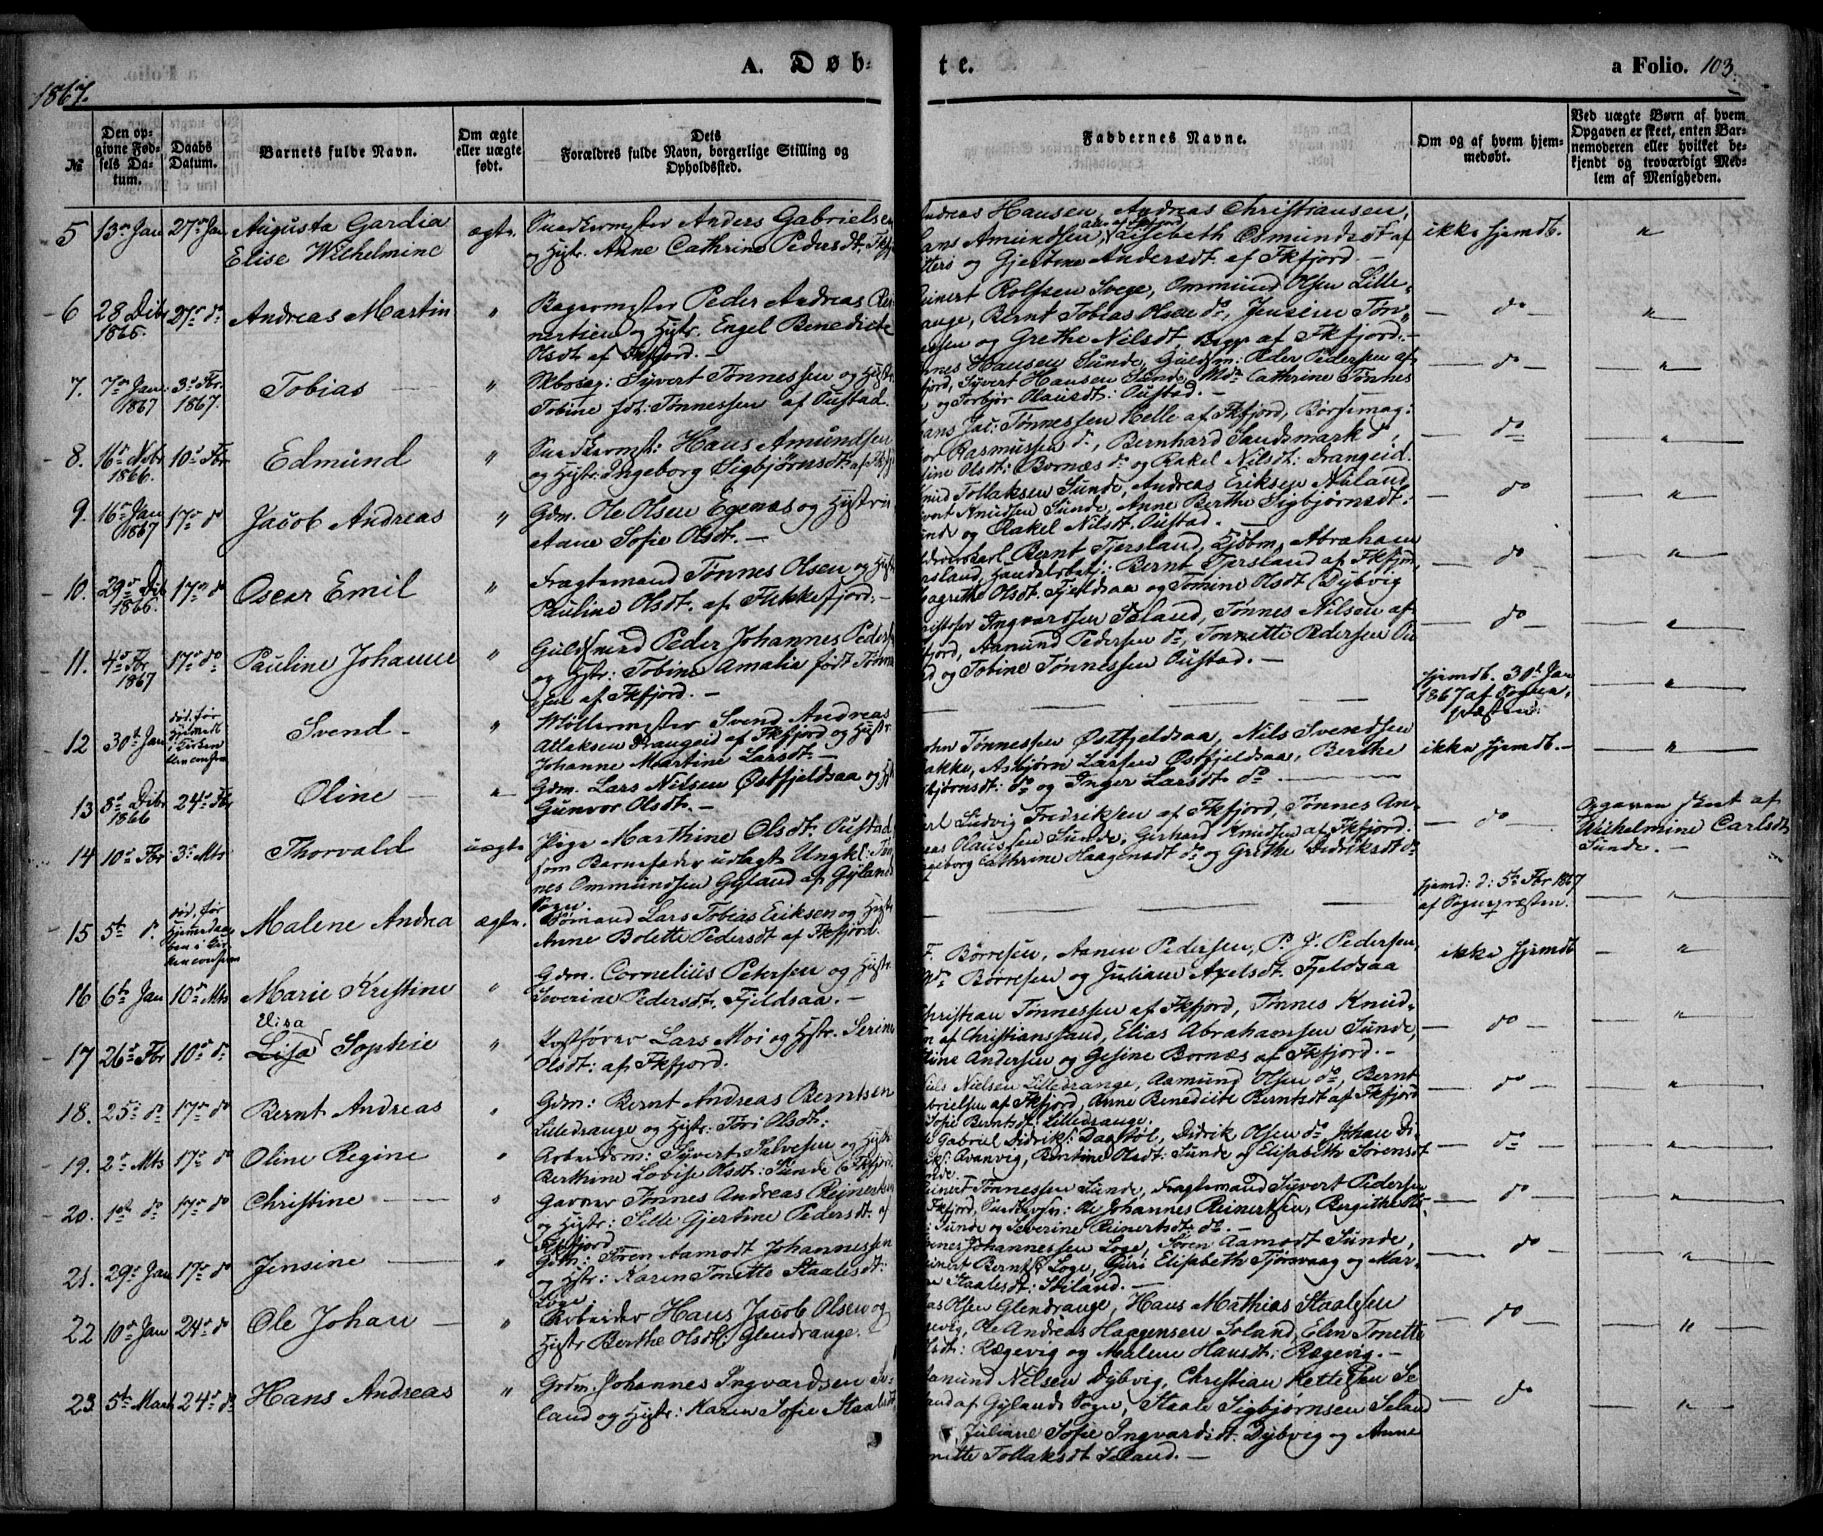 1867.
A. Døb-
te.
a Folio. 103.
№
Den opgivne Fødsels Datum.
Daabs Datum.
Barnets fulde Navn.
Om ægte eller uægte født.
Dets Forældres fulde Navn, borgerlige Stilling og Opholdssted.
Faddernes Navne.
Om og af hvem hjemmedøbt.
Ved uægte Børn af hvem Opgaven er skeet, enten Barnemoderen eller hvilket bekjendt og troværdigt Medlem af Menigheden.
5 13de Jan 27de Jan Augusta Gardia
Elise Wilhelmine
ægte. Snedkermester Anders Gabrielsen
og Hstr. Anne Cathrine Pedersdt. Fkfj
Andreas Hansen, Andreas Christiansen,
Hans Amundsen, Lisebeth Osmundsdt af
Hitterø og Gjertine Andersdt. af Fkfjord. —
ikke hjemdb. "
6 28 Dcbr 1865. 27de do Andreas Martin "
Bagermester Peder Andreas
og Hstr. Engel Benedicte
Olsdt. af Fkfjord. —
Reinert Rolfsen Svege, Ommund Olsen Lille-
drange, Bernt Tobias Olsen do, Jensine Tøn-
nesen og Grethe Nilsdt. af Fkfjord. —
— do — "
7. 7de Jan 1867 3de Fbr. 1867. Tobias — "
Skosmg: Syvert Tønnessen og Hstr.
Tobine fdt. Tønnessen af Oustad.
Hansen Sunde, Guldsm: Peder Pedersen af
Fkfjord, Syvert Hansen Sunde, Md. Cathrine Tønnes
og Torbjør Olausdt: Oustad. —
— do — "
8. 16de Nbr 1866. 10de Fbr Edmund "
Snedkermst: Hans Amundsen
og Hstr. Ingeborg Sigbjørnsdt. af Fkfj
Hans Jac: Tønnessen Helle af Fkfjord, Børsemag:
Rasmussen do, Bernhard Sandsmark do,
Olsdt: Bornæs do og Rakel Nilsdt: Drangeid.
— do — "
9. 16de Jan 1867 17de do Jacob Andreas "
Gdm. Ole Olsen Egenæs og Hstr
Anne Sofie Olsdt. —
Knud Tollaksen Sunde, Andreas Eriksen Aaland,
Syvert Knudsen Sunde, Anne Berthe Sigbjørnsdt:
Sunde og Rakel Nilsdt. Oustad.
— do — "
10. 29de Dcb 1866. 17de do Oscar Emil "
Fragtemand Tønnes Olsen og Hstr
Pauline Olsdt. af Flekkefjord. —
Bernt Tjersland, Kjøbm. Abraham
Tjersland, Handelsbetj: Bernt Tjersland af Fkfjord,
Magrethe Olsdt. Fjeldsaa og Tomine Olsdt. Dybvig
— do — "
11. 4de Fbr 1867 17de do Pauline Johanne "
Guldsmed Peder Johannes Peders
og Hstr: Tobine Amalia født Tønnes
sen af Fkfjord. —
Ingvardsen Seland, Tønnes Nilsen af
Fkfjord, Aamund Pedersen do, Tonnette Pedersen Ou
stad og Tobine Tønnessen Oustad. —
— do — "
12 30te Jan død, før
Svend — "
Møllermester Svend Andreas
Atlaksen Drangeid af Fkfjord og Hstr
Johanne Martine Larsdt. —
hjemdb. 30te Jan
1867 af Sogne-
præsten.
"
13 8de Dcbr 1866 24de Fbr Oline — "
Gdm. Lars Nilsen Østfjeldsaa og Hstr
Gunvor Olsdt. —
John Tønnessen Østfjeldsaa, Nils Svendsen
Bakke, Asbjørn Larsen Østfjeldsaa, Berthe
Asbjørnsdt: do og Inger Larsdt. do
ikke hjemdb. — "
14 10de Fbr 3de Mts Thorvald uægte
Pige Marthine Olsdt. Oustad
som Barnefader udlagt Ungkl. Tøn
nes Ommundsen Gyland af Gylands
Sogn.
Carl Ludvig Fredriksen af Fkfjord, Tønnes An-
dreas Olaussen Sunde, Gerhard Knudsen af Fkfjord.
Ingeborg Cathrine Haagensdt do og Grethe Didriksdt do
— do — Opgaven skeet af
Wilhelmine Carlsdt
Sunde. —
15 5te do. død, før
Malene Andrea ægte.
Lars Tobias Eriksen og Hstr
Anne Bolette Pedersdt af Fkfjord.
hjemd: d: 5te Fbr 1867
af Sognepræsten.
"
16 6te Jan 10de Mts Marie Kristine "
Gdm. Cornelius Petersen og Hstr.
Severine Pedersdt. Fjeldsaa. —
F. Børresen, Aanen Pedersen, P. J. Pedersen,
Md. Børresen og Juliane Axelsdt. Fjeldsaa
ikke hjemdb — "
17 26de Fbr 10de do Lisa Sophie "
Postfører Lars Moi og Hstr. Serine
Olsdt: af Fkfjord.
Christian Tønnessen af Fkfjord, Tønnes Knud-
sen af Christianssand, Elias Abrahamsen Sunde,
Andersen og Gesine Bornæs af Fkfjord. —
— do — "
18. 25de do 17de do Bernt Andreas "
Gdm: Bernt Andreas Berntsen
Lilledrange og Hstr: Tori Olsdt:
Nils Nielsen Lilledrange, Aamund Olsen do, Bernt
Gabrielsen af Fkfjord, Anne Benedicte Berntsdt af Fkfjord
Sofie Berntsdt: Lilledrange.
— do — "
19. 2de Mts 17de do Oline Regine "
Arbeidsm: Syvert Salvesen og Hstr
Berthine Lovise Olsdt: Sunde
Gabriel Didriks: Dagstøl, Didrik Olsen do, Johan Di-
driks: Kvanvig, Berntine Olsdt: Sunde og Elisabeth Sørensdt
— do — "
20. 1ste do 17de do Christine — "
Garver Tønnes Andreas Reinerts
og Hstr: Sille Gjertine Pedersdt. af
Fkfjord
Reinert Tønnessen Sunde, Fragtemand Syvert Pedersen
Fkfjord, Ole Johannes Reinertsen, Bergithe
Sunde og Severine Reinertsdt. do. —
— do — "
21. 29de Jan 17de do Jensine — "
Gdm: Søren Aamodt Johannessen
og Hstr: Karen Tonette Staalesdt.
Loge.
Johannessen Loge, Søren Aamodt Sunde,
Reinert Bernts: Loge, Guri Elisabeth Tjørsvaag og Mar-
Staalesdt: Stiland. —
— do — "
22 10de Jan 24de do Ole Johan — "
Arbeider Hans Jacob Olsen og
Hstr Berthe Olsdt. Glendrange.
Olsen Glendrange, Hans Mathias Staalesen
Rægevig, Ole Andreas Haagensen Seland, Elen Tonette
Olsdt: Rægevig og Malene Hansdt: Rægevig. —
— do — "
23. 5te Marts 24de do Hans Andreas "
Grdm. Johannes Ingvardsen Se-
land og Hstr: Karen Sofie Staalesdt.
Aamund Nilsen Dybvig, Christian Kettelsen Se
land af Gylands Sogn, Staale Sigbjørnsen Seland
Juliane Sofie Ingvardsdt. Dybvig og Anne
Tollaksdt Seland. —
— do "